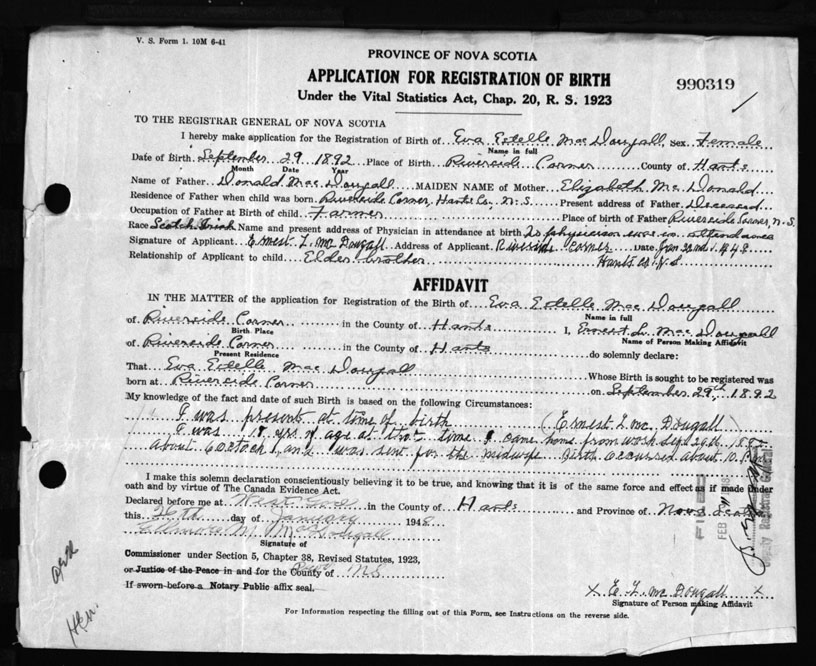 V. S. Form 1. 10M 6-41
PROVINCE OF NOVA SCOTIA
APPLICATION FOR REGISTRATION OF BIRTH
990319
Under the Vital Statistics Act, Chap. 20, R. S. 1923
TO THE REGISTRAR GENERAL OF NOVA SCOTIA
I hereby make application for the Registration of Birth of Eva Estelle MacDougall, Sex Female
Name in full
Date of Birth September 29 1892 Place of Birth Riverside Corner County of Hants
Month Date Year
Name of Father Donald MacDougall MAIDEN NAME of Mother Elizabeth McDonald
Residence of Father when child was born Riverside Corner, Hants Co, N.S Present address of Father Deceased
Occupation of Father at Birth of child Farmer Place of birth of Father Riverside Corner, N.S
Race Scotch Irish Name and present address of Physician in attendance at birth No physician was in attendance
Signature of Applicant Ernest L. McDougall Address of Applicant Riverside Corner Date Jan 22nd 1948
Relationship of Applicant to child Elder brother Hants Co. N S
AFFIDAVIT
IN THE MATTER of the application for Registration of the Birth of Eva Estelle MacDougall
Name in full
of Riverside Corner in the County of Hants I, Ernest L. MacDougall
Birth Place Name of Person Making Affidavit
of Riverside Corner in the County of Hants do solemnly declare:
Present Residence
That Eva Estelle MacDougall Whose Birth is sought to be registered was
born at Riverside Corner on September 29th 1892
My knowledge of the fact and date of such Birth is based on the following Circumstances:
I was present at time of birth (Ernest L. McDougall)
I was 18 yrs of age at that time I came home from work Sept
about 6 Oclock, and I was sent for the midwife Birth occurred about 10 P.m.
I make this solemn declaration conscientiously believing it to be true, and knowing that it is of the same force and effect as if made under
oath and by virtue of The Canada Evidence Act.
Declared before me at West Gore in the County of Hants and Province of Nova Scotia
this 26th day of January 1948
MacDougall
Signature of
Commissioner under Section 5, Chapter 38, Revised Statutes, 1923,
or Justice of the Peace in and for the County of N.S.
If sworn before a Notary Public affix seal.
x E. L. McDougall x
Signature of Person making Affidavit
For Information respecting the filling out of this Form, see Instructions on the reverse side.
FILED
FEB
Deputy Registrar General